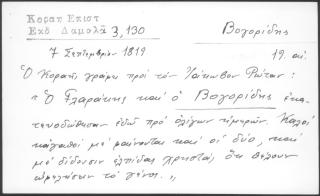 Κοραη Επιστ
Εκδ Δαμαλά 3,130
Βογορίδης
7 Σεπτεμβρίου 1819
19. αι.
Ὁ Κοραῆς γράφει πρός τόν Ἰάκωβον Ρώταν:
"Ὁ Γλαράκης καί ὁ Βογορίδης
ἐδῶ πρό ὀλίγων ἡμερῶν. Καλοί
κἀγαθοί μέ φαίνονται καί οἱ δύο, καί
μέ δίδουσιν ἐλπίδας χρηστάς, ὅτι θέλουν
ὠφελήσειν τό γένος."